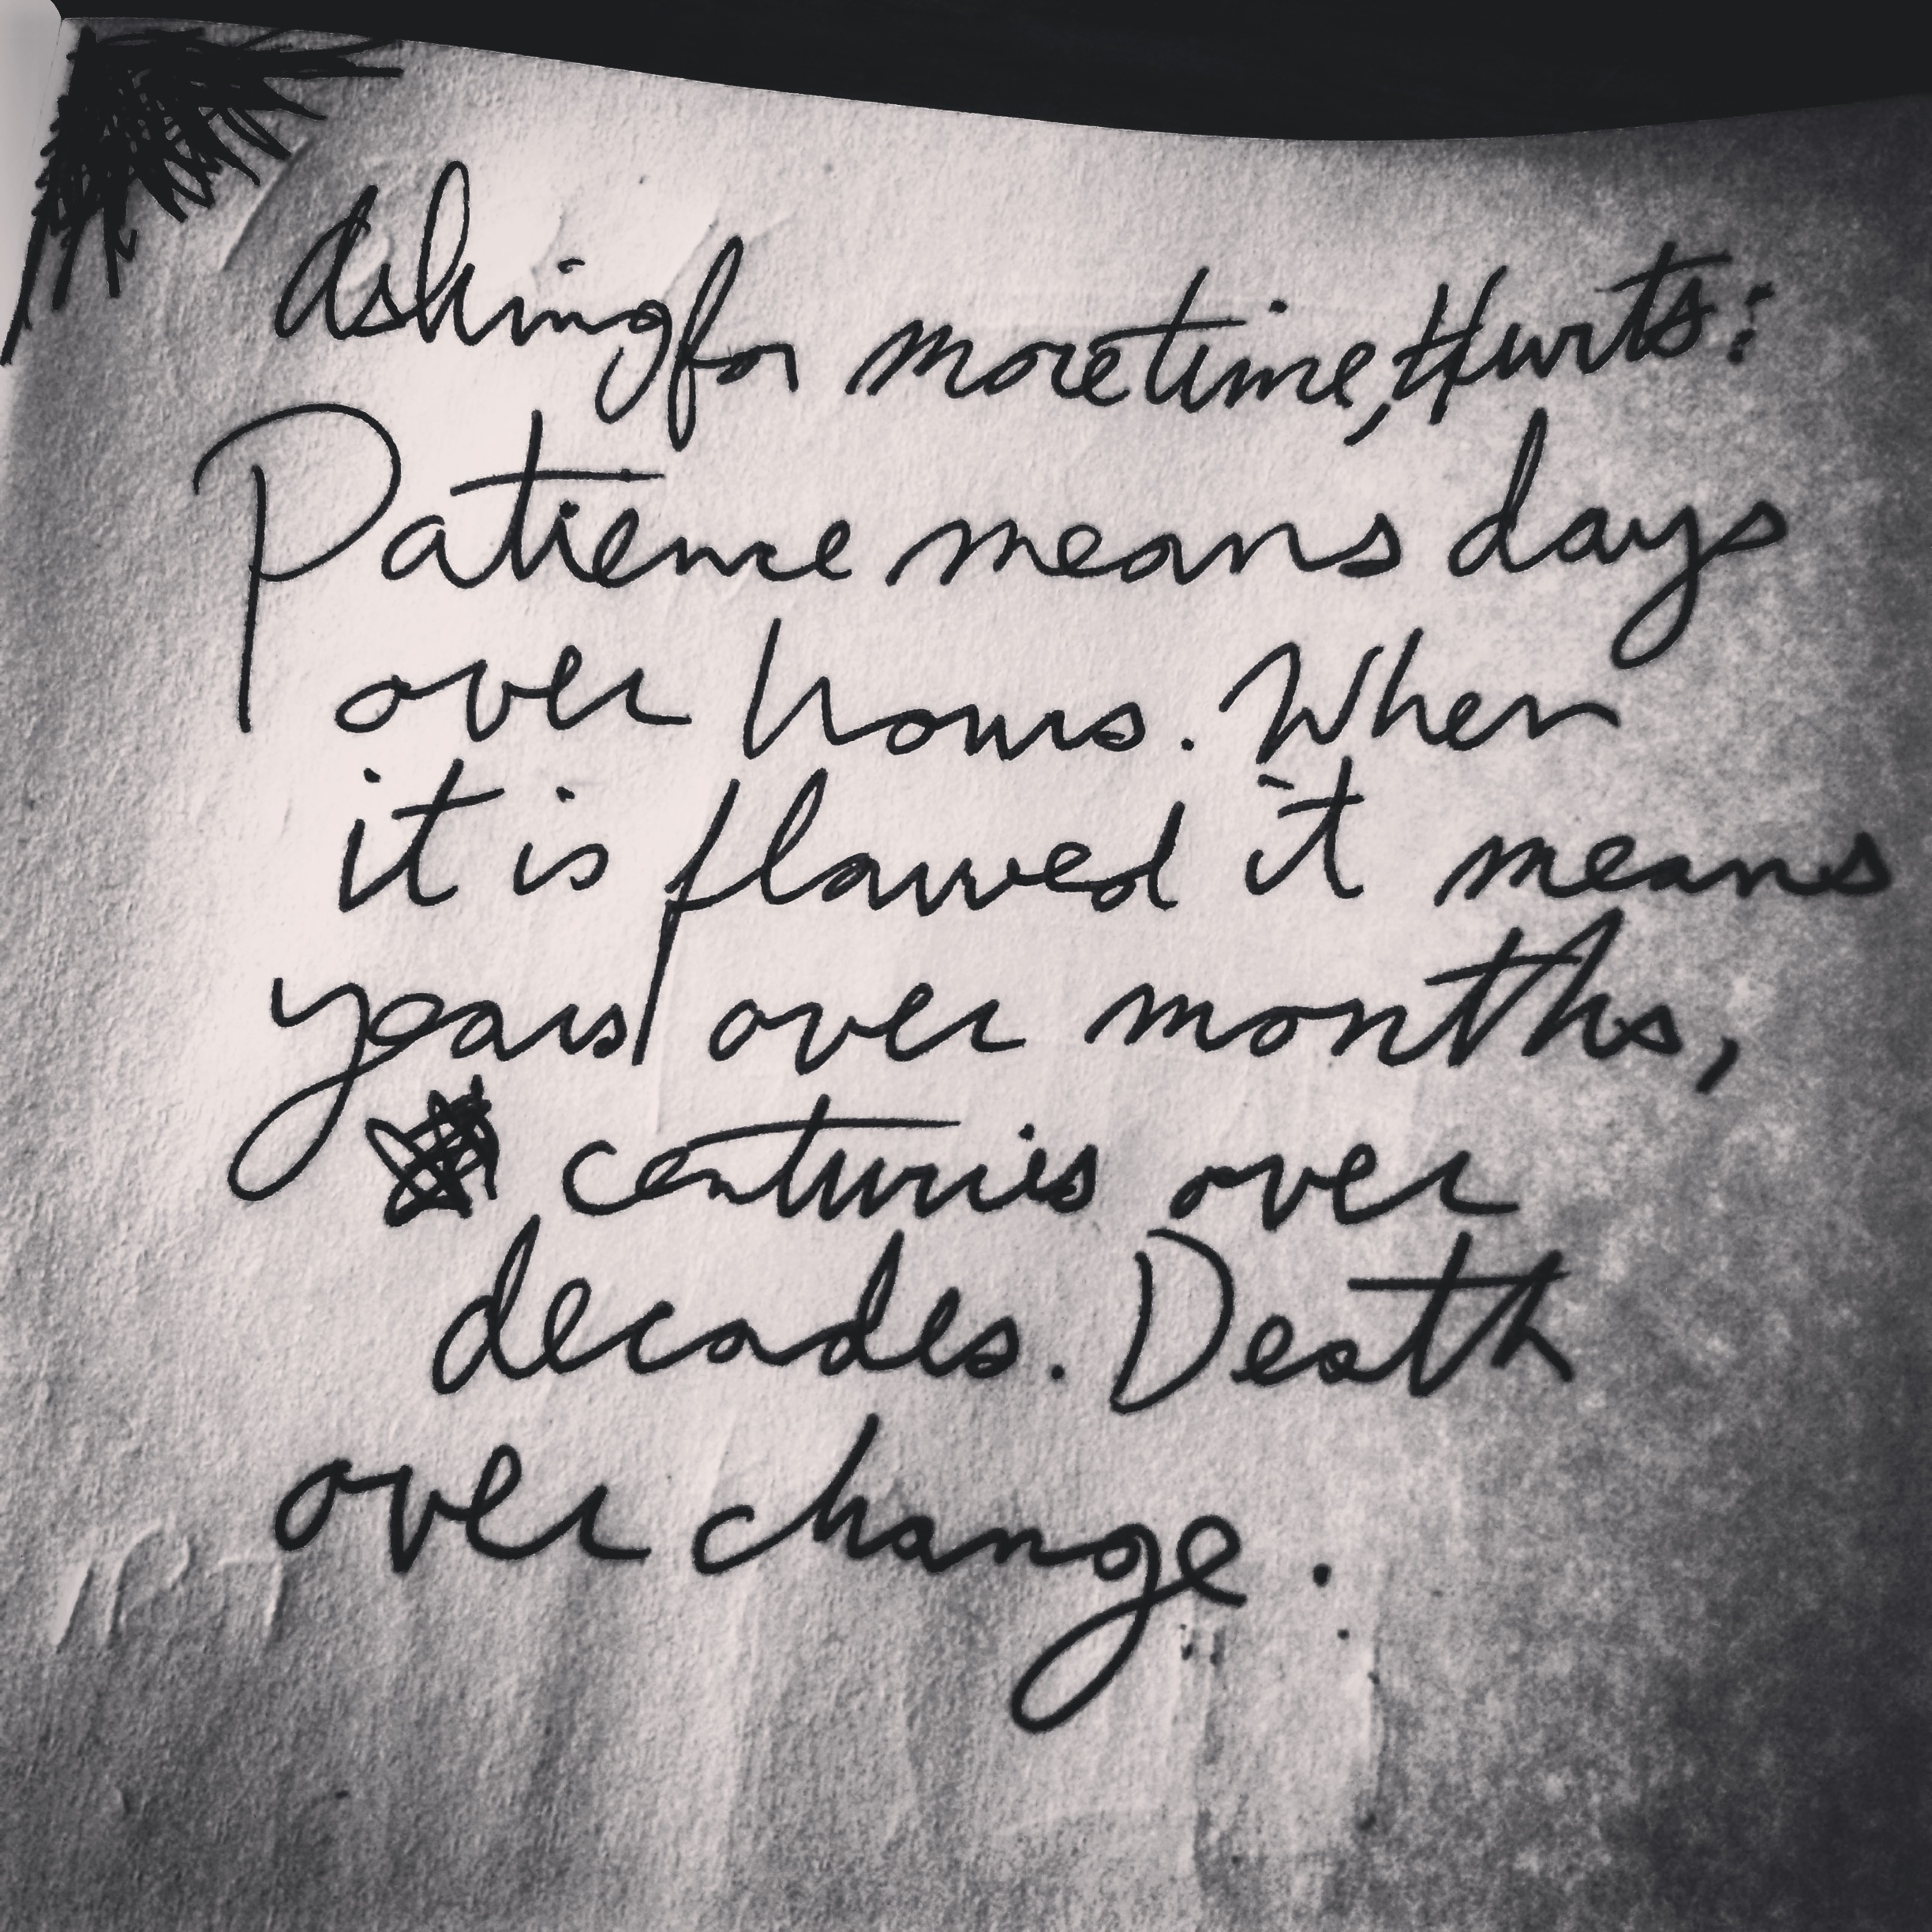 Asking for more time, Hurts:
Patience means days
over hours. When
it is flawed it means
years over months,
centuries over
decades. Death
over change.